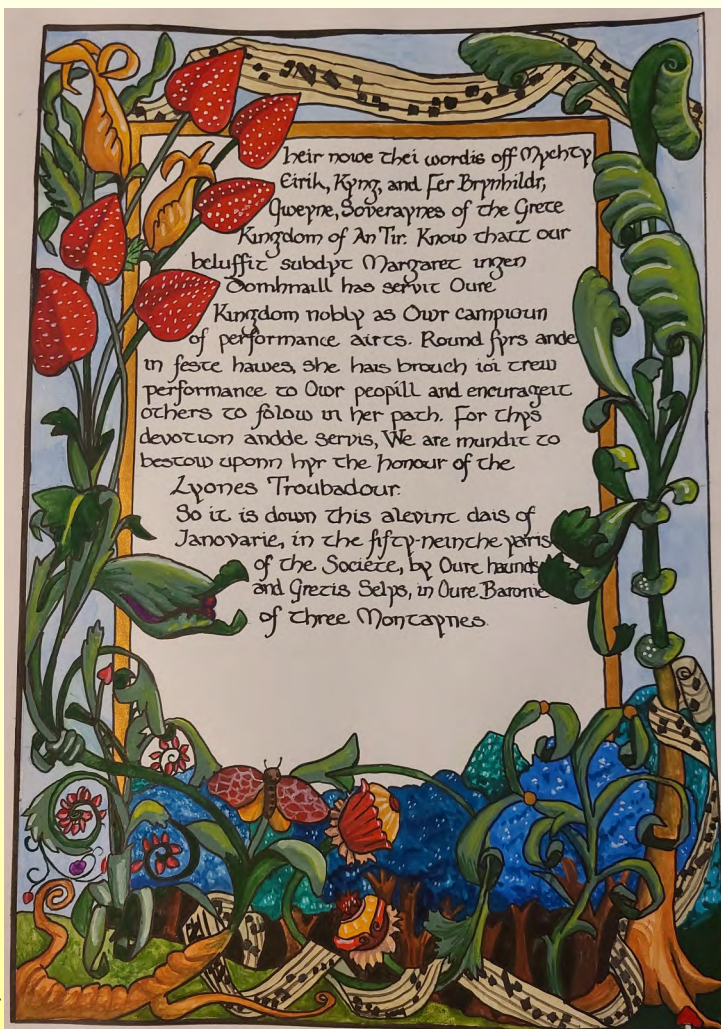 heir nowe thei wordis off Mychty
Eirik, Kyng, and Fer Brynhildr,
Qweyne, Soveraynes of the Grete
Kingdom of An Tir. Know thatt our
beluffit subdyt Margaret ingen
Domhnaill has servit Oure
Kingdom nobly as Owr campioun
of performance airts. Round fyrs ande
in feste hawes, she hais brouch ioi trew
performance to Owr peopill and encurageit
others to folow in her path. For thys
devotion andde servis, We are mundit to
bestow uponn hyr the honour of the
Lyones Troubadour.
So it is down this alevint dais of
Janovarie, in the fifty-neinthe yaris
of the Societe, by Oure haunds
and Gretis Selps, in Oure Baronie
of Three Montaynes.